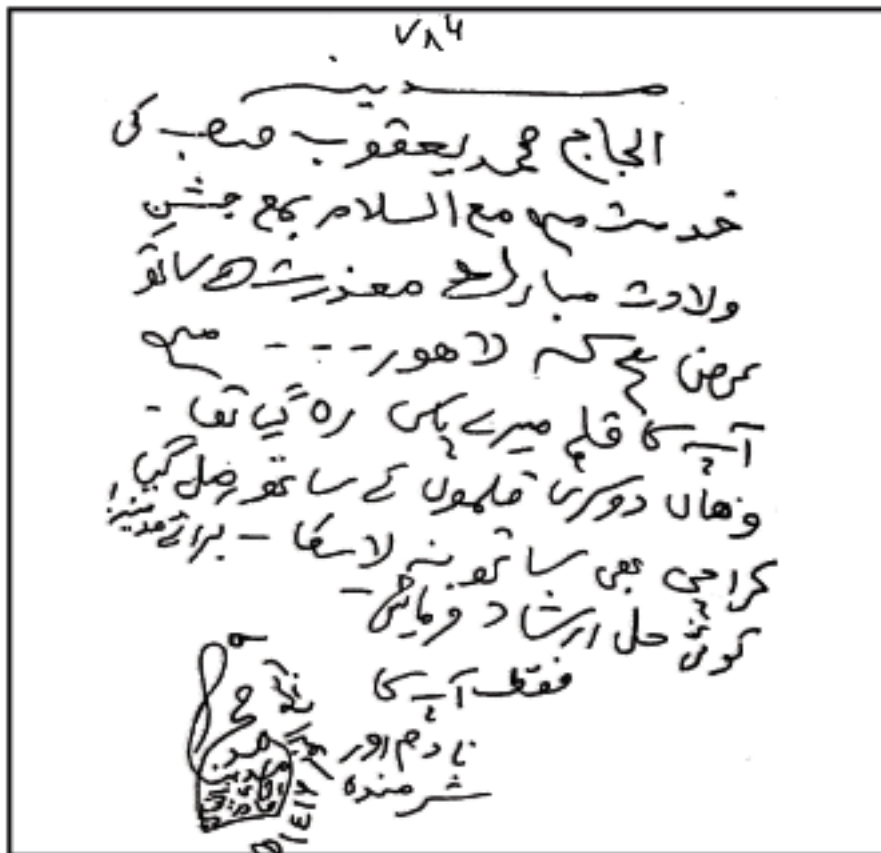 ۷۸۶
مدینہ
الحاج محمد یعقوب صاحب کی
خدمت میں مع السلام بمع جشنِ
ولادت مبارک معذرت کے ساتھ
عرض ہے کہ لاھور --- میں
آپ کا قلم میرے پاس رہ گیا تھا -
وھاں دوسری قلموں کے ساتھ مل گیا
کراچی بھی ساتھ نہ لا سکا - برائے مدینہ!
کوئی حل ارشاد فرمائیں -
فقط آپ کا
نادم اور
شرمندہ